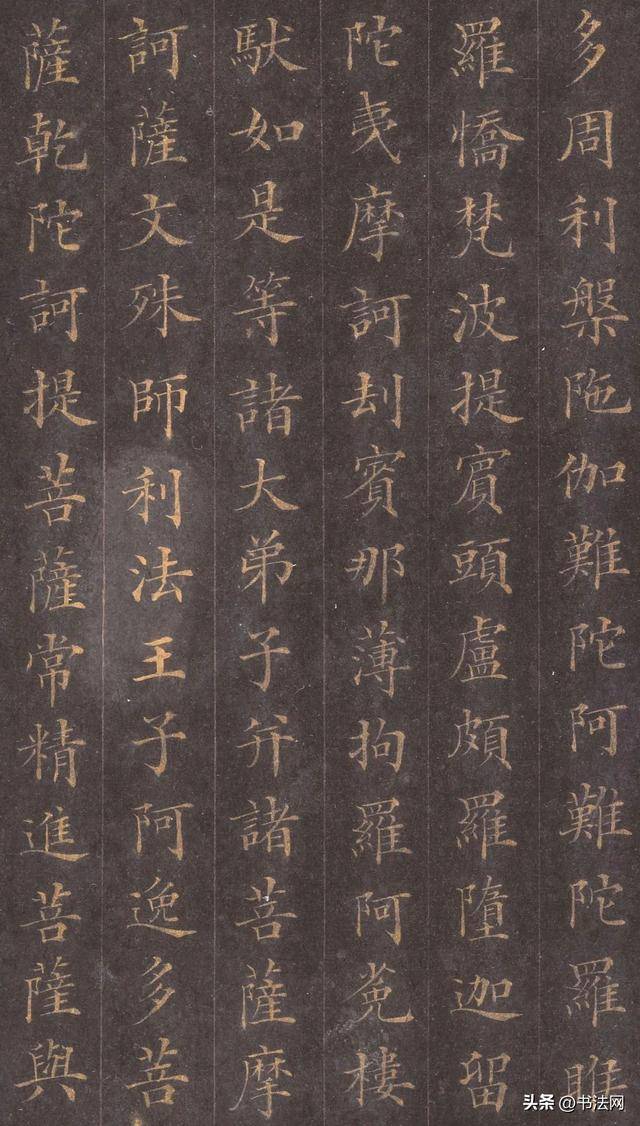 多周利槃陁伽難陀阿難陀羅睺
羅憍梵波提賓頭盧頗羅墮迦留
陀夷摩訶刧賓那薄拘羅阿㝹樓
馱如是等諸大弟子并諸菩薩摩
訶薩文殊師利法王子阿逸多菩
薩乾陀訶提菩薩常精進菩薩與
头条 @书法网